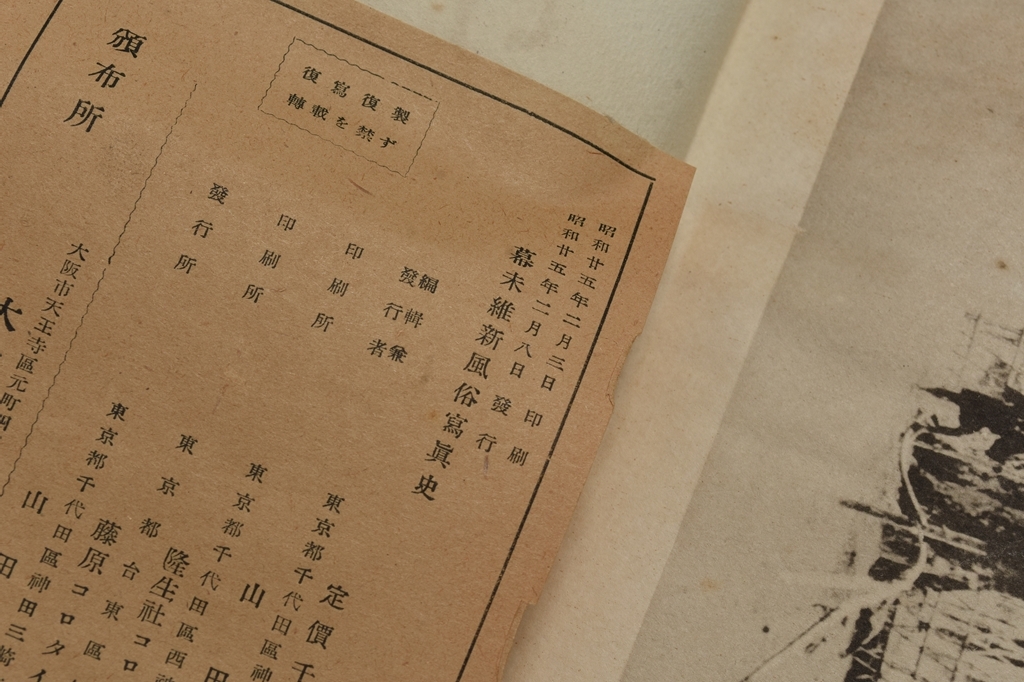 昭和廿五年二月三日 印刷
昭和廿五年二月八日 發行
幕末維新風俗寫眞史
定價千
編輯兼
發行者
東京都千代田區神
山田
印刷所
東京都千代田區西神
隆生社コロ
印刷所
東京都台東區
藤原コロタイ
發行所
東京都千代田區神田三崎
山田
復寫復製
轉載を禁ず
頒布所
大阪市天王寺區元町四
大